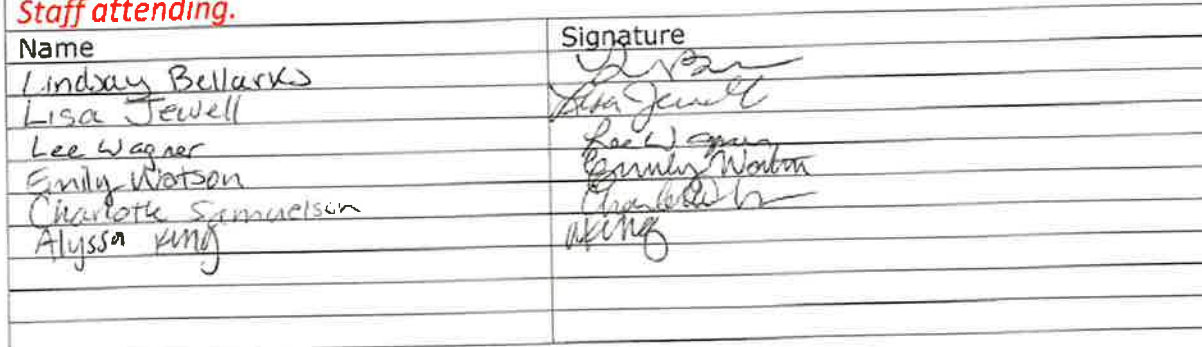 Staff attending.
Name Signature
Lindsay Bellarks
Lisa Jewell Lisa Jewell
Lee Wagner Lee Wagner
Emily Watson Emily Watson
Charlotte Samuelson
Alyssa King AKing